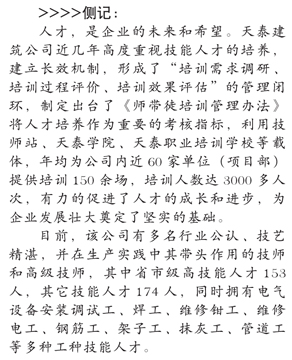 >>>>侧记：
人才，是企业的未来和希望。天泰建
筑公司近几年高度重视技能人才的培养，
建立长效机制，形成了“培训需求调研、
培训过程评价、培训效果评估”的管理闭
环，制定出台了《师带徒培训管理办法》
将人才培养作为重要的考核指标，利用技
师站、天泰学院、天泰职业培训学校等载
体，年均为公司内近 60 家单位（项目部）
提供培训 150 余场，培训人数达 3000 多人
次，有力的促进了人才的成长和进步，为
企业发展壮大奠定了坚实的基础。
目前，该公司有多名行业公认、技艺
精湛，并在生产实践中其带头作用的技师
和高级技师，其中省市级高技能人才 153
人，其它技能人才 174 人，同时拥有电气
设备安装调试工、焊工、维修钳工、维修
电工、钢筋工、架子工、抹灰工、管道工
等多种工种技能人才。